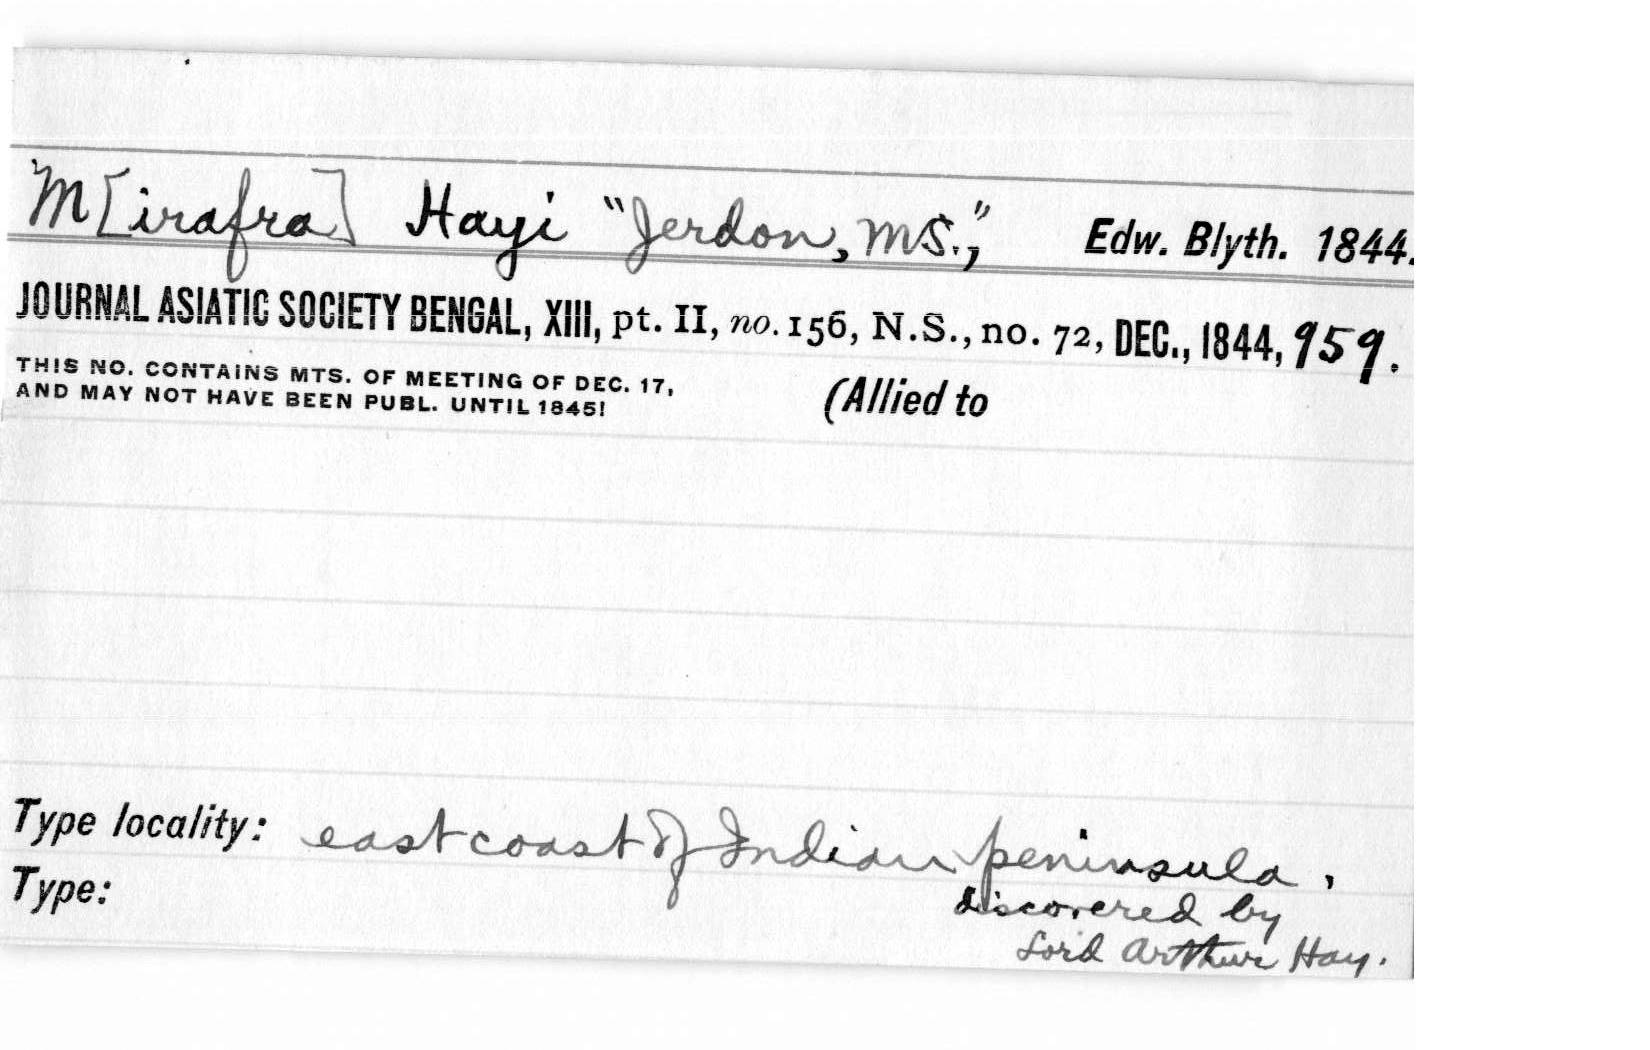 M[irafra] Hayi "Jerdon, MS.," Edw. Blyth. 1844.
JOURNAL ASIATIC SOCIETY BENGAL, XIII, pt. II, no. 156, N.S., no. 72, DEC., 1844, 959.
THIS NO. CONTAINS MTS. OF MEETING OF DEC. 17,
AND MAY NOT HAVE BEEN PUBL. UNTIL 1845!
(Allied to
Type locality: east coast of Indian peninsula,
discovered by
Type:
Lord Arthur Hay.